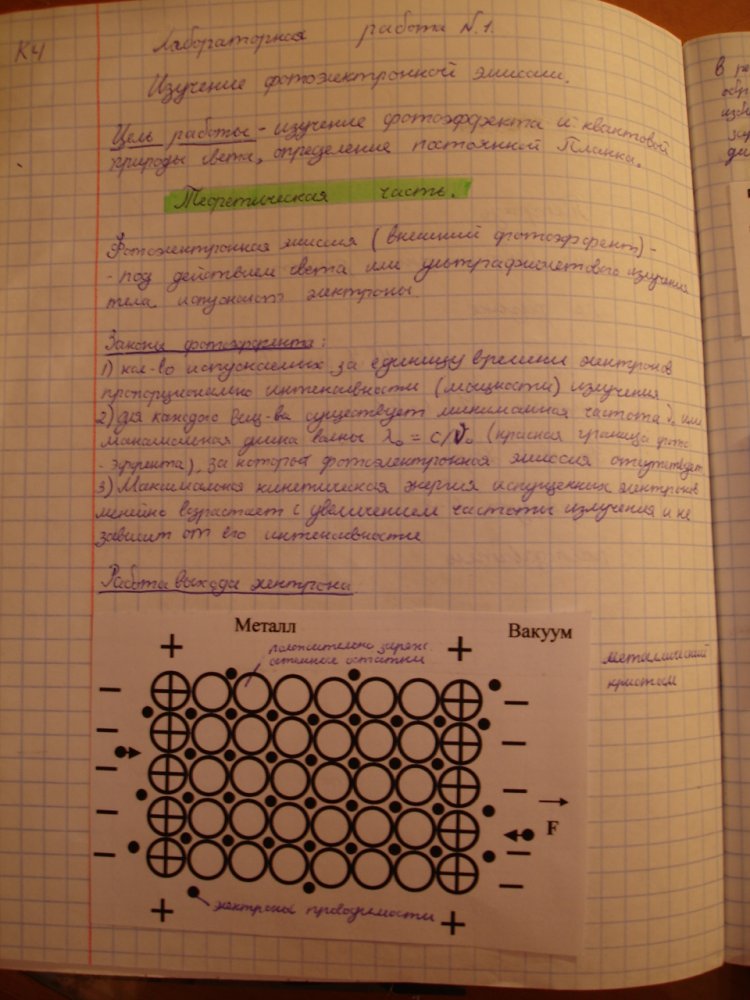 К4
Лабораторная работа N.1.
Изучение фотоэлектронной эмиссии.
Цель работы - изучение фотоэффекта и квантовой
природы света, определение постоянной Планка.
Теоретическая часть.
Фотоэлектронная эмиссия (внешний фотоэффект) -
- под действием света или ультрафиолетового излучения
тела испускают электроны.
Законы фотоэффекта:
1) кол-во испускаемых за единицу времени электронов
пропорционально интенсивности (мощности) излучения
2) для каждого вещ-ва существует минимальная частота ν₀ или
максимальная длина волны λ₀ = c/ν₀ (красная граница фото
- эффекта), за которой фотоэлектронная эмиссия отсутствует
3) Максимальная кинетическая энергия испущенных электронов
линейно возрастает с увеличением частоты излучения и не
зависит от его интенсивности
Работа выхода электрона
Металл Вакуум
положительно заряж.
остатки
металлический
кристалл
F
электроны проводимости